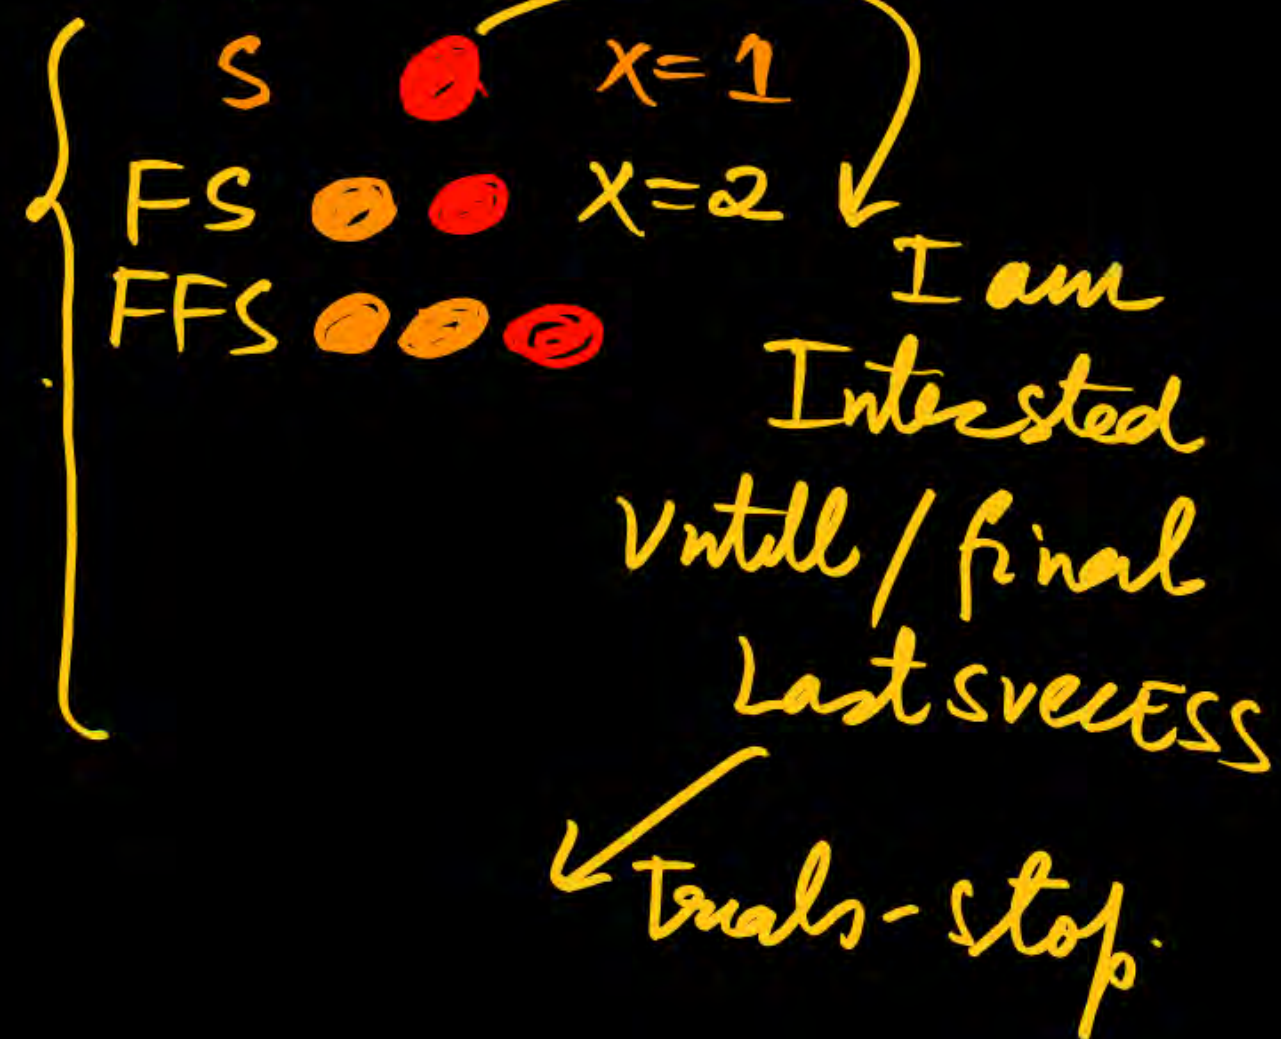 S X=1
FS X=2
FFS
I am
Intersted
Untill / final
Last svccESS
Trials - stop.